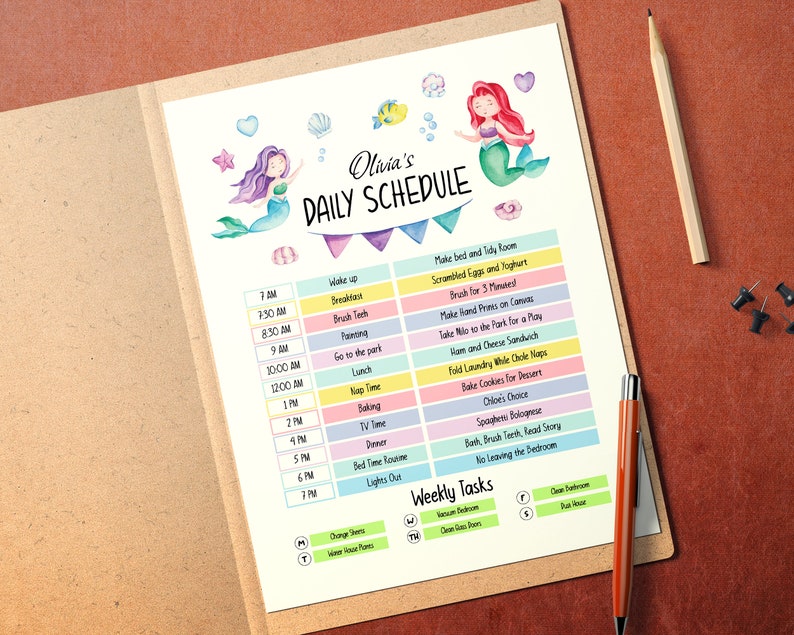 Olivia's
DAILY SCHEDULE
7 AM Wake up Make bed and Tidy Room
7:30 AM Breakfast Scrambled Eggs and Yoghurt
8:30 AM Brush Teeh Brush for 3 Minutes!
9 AM Painting Make Hand Prints on Canvas
10:00 AM Go to the park Take Nilo to the Park for a Play
12:00 AM Lunch Ham and Cheese Sandwich
1 PM Nap Time Fold Laundry While Chole Naps
2 PM Baking Bake Cookies For Dessert
4 PM TV Time Chloe's Choice
5 PM Dinner Spaghetti Bolognese
6 PM Bed Time Routine Bath, Brush Teeth, Read Story
7 PM Lights Out No Leaving the Bedroom
Weekly Tasks
M Change Sheets W Vacuum Bedroom F Clean Bathroom
T Water House Plants TH Clean Glass Doors S Dust House